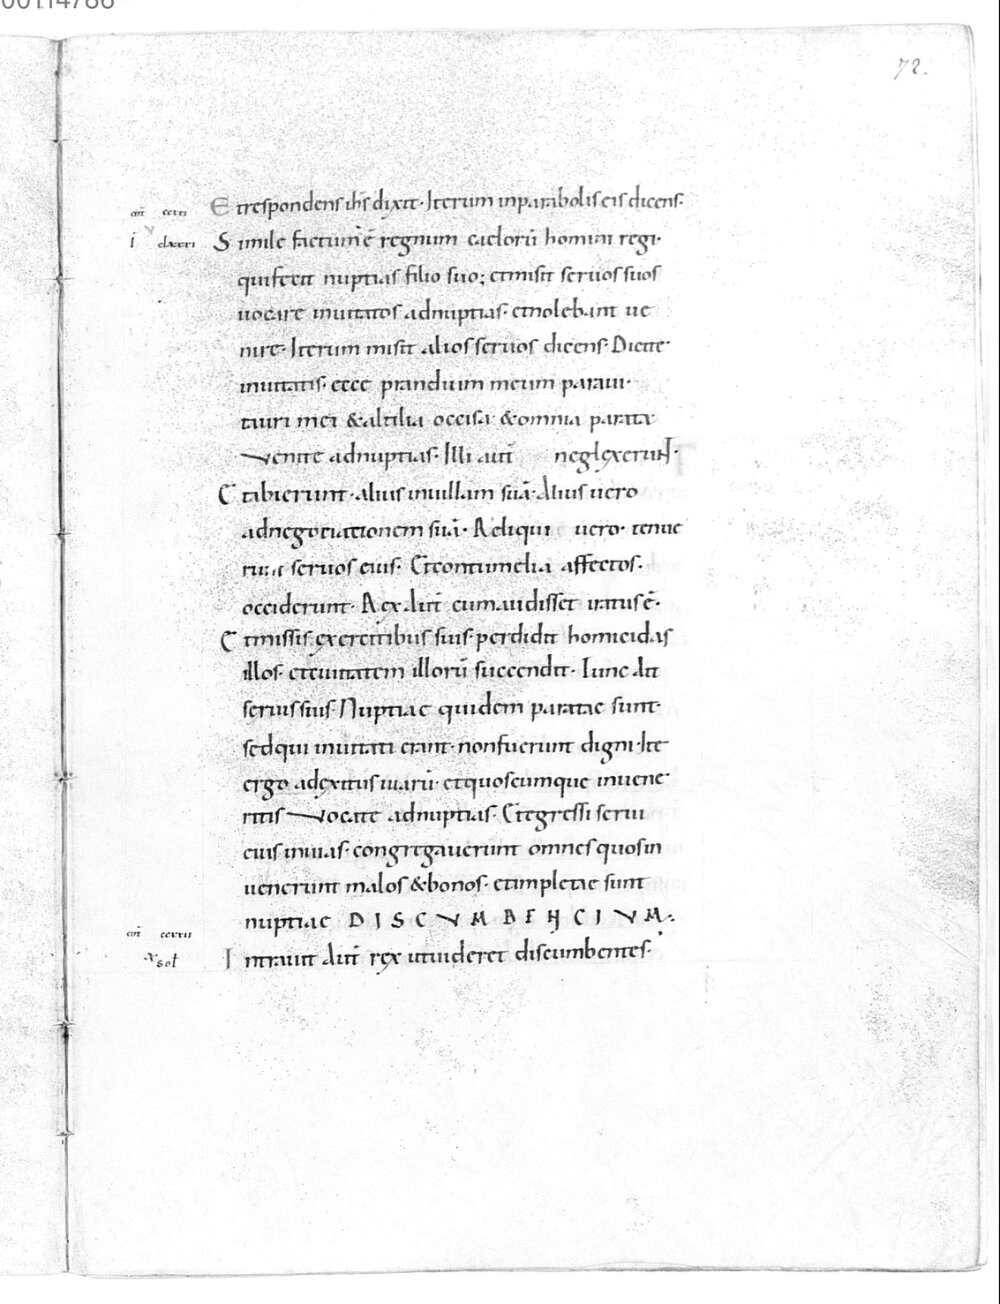 72.
Et respondens ihs dixit· Iterum inparabolis eis dicens·
Simile factum ē regnum caelorū homini regi·
quifecit nuptias filio suo; etmisit seruos suos
uocare inuitatos adnuptias· etnolebant ue
nire· Iterum misit alios seruos dicens· Dicite·
inuitatis· ecce prandium meum paraui·
tauri mei & altilia occisa· & omnia parata·
venite adnuptias· Illi autē neglexerunt·
Et abierunt· alius inuillam suā· Alius uero
adnegotiationem suā· Reliqui uero· tenue
runt seruos eius· Et contumelia affectos·
occiderunt· Rex autē cum audisset iratus ē·
Et missis exercitibus suis· perdidit homicidas
illos· et ciuitatem illorū succendit· Tunc ait
seruis suis· Nuptiae quidem paratae sunt·
sed qui inuitati erant· non fuerunt digni· Ite
ergo adexitus uiarū· et quoscumque inuene
ritis vocate adnuptias· Et egressi serui
eius inuias· congregauerunt omnes quos in
uenerunt malos & bonos· et impletae sunt
nuptiae DISCVMBENCIVM·
Intrauit autē rex ut uideret discumbentes·